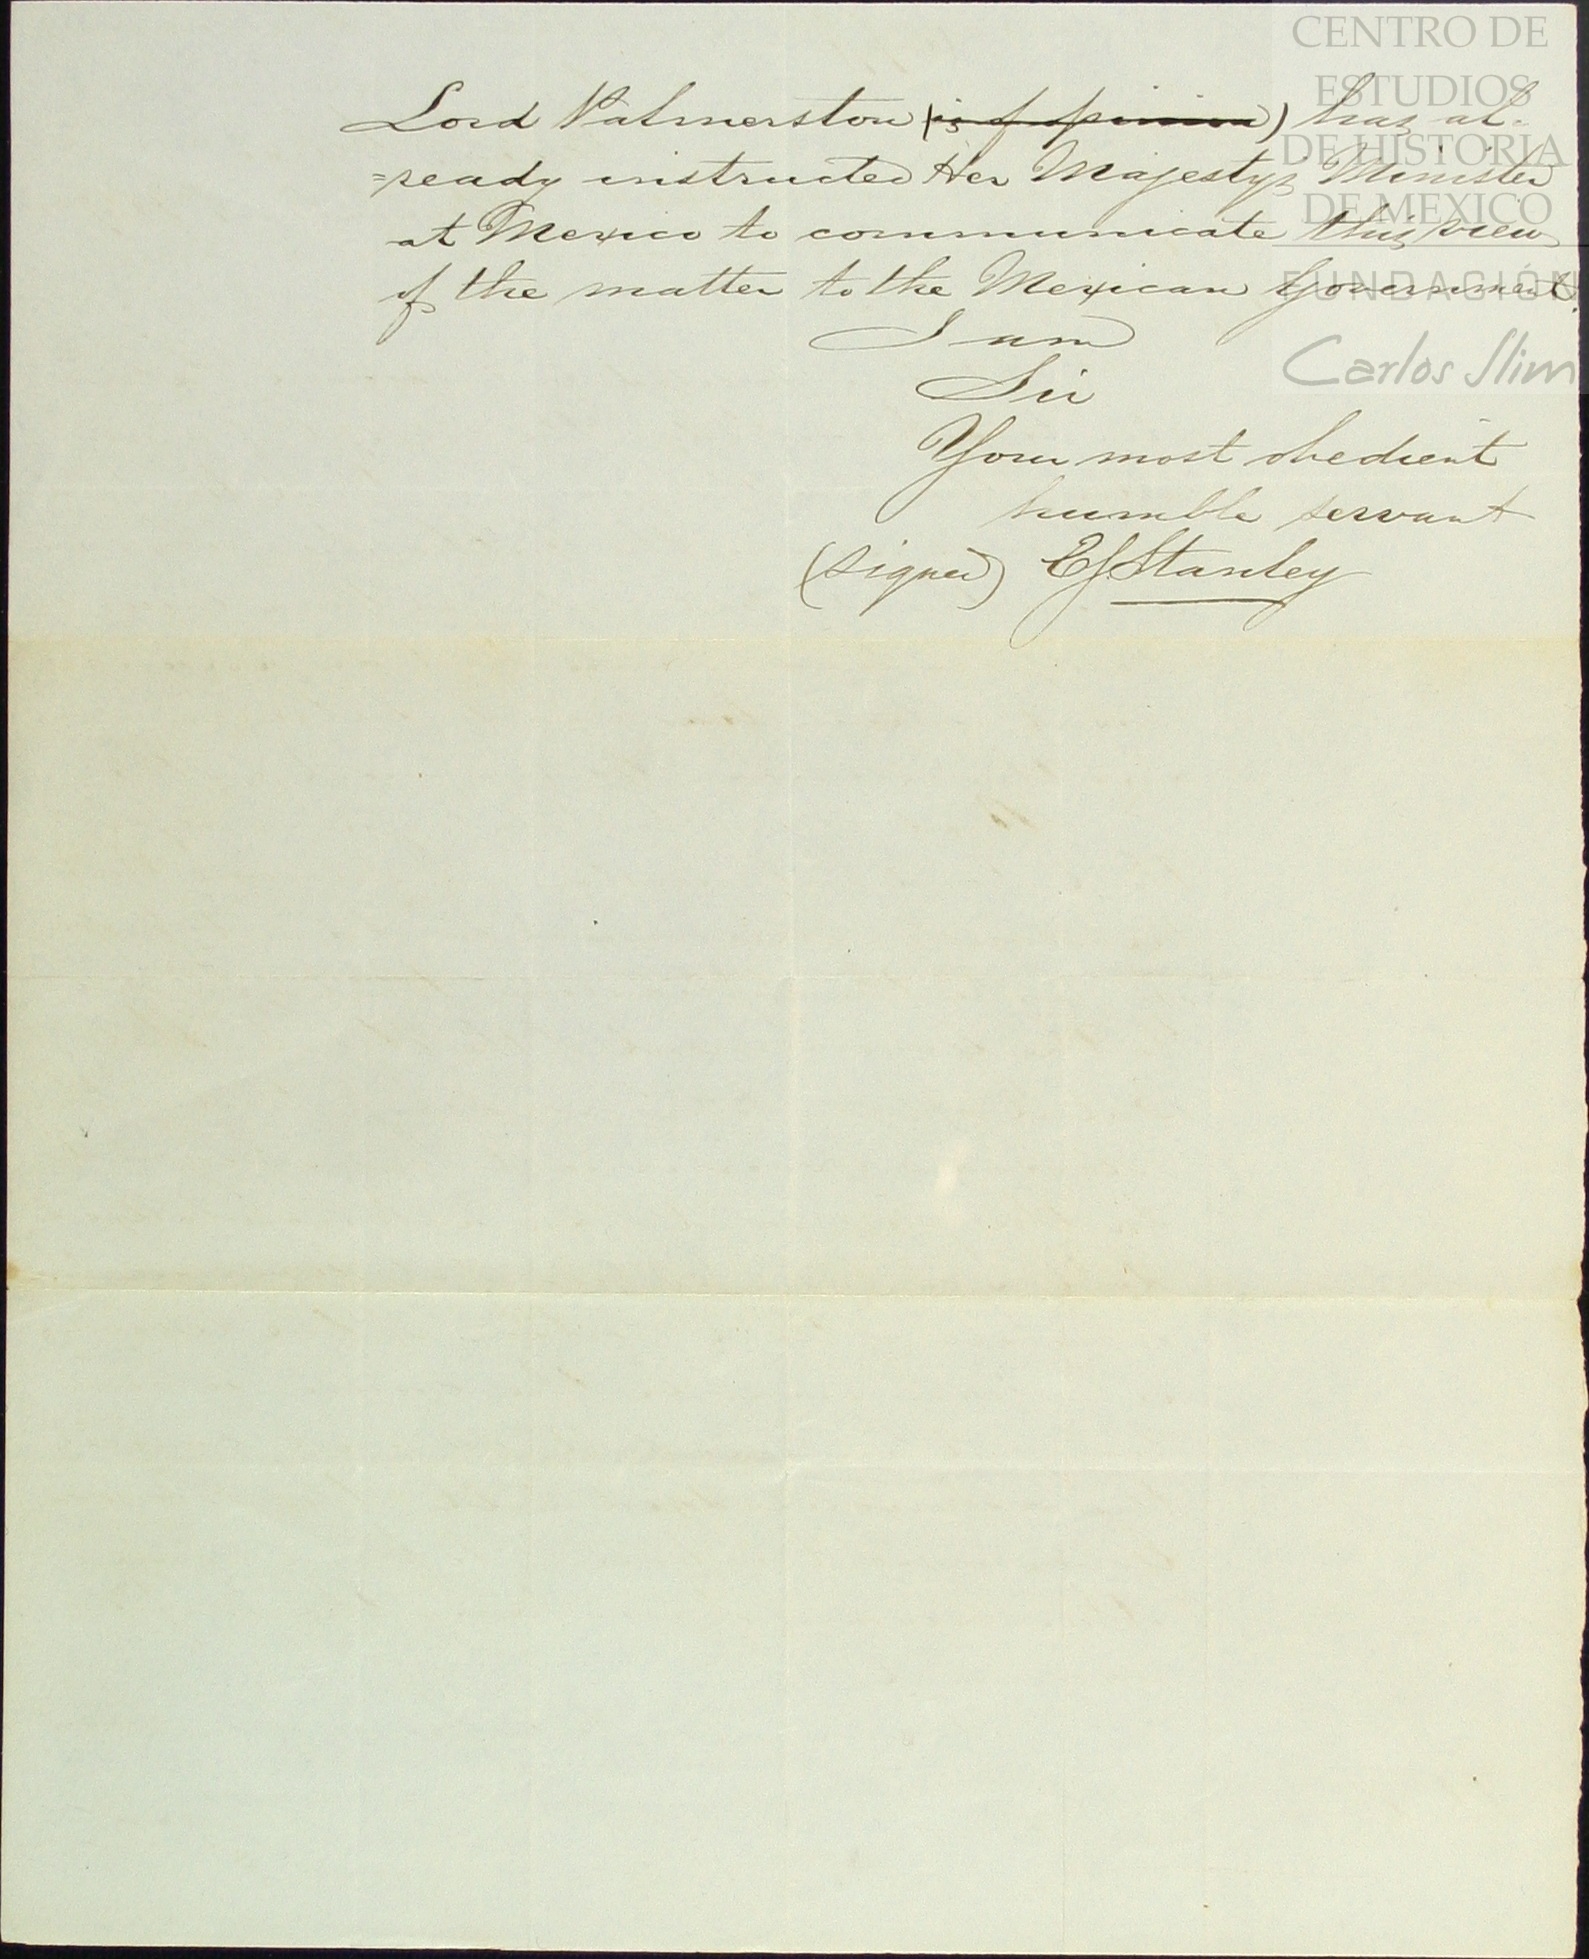 CENTRO DE
ESTUDIOS
DE HISTORIA
DE MEXICO
FUNDACIÓN
Carlos Slim
Lord Palmerston (is of opinion) has al-
=ready instructed Her Majesty's Minister
at Mexico to communicate this view
of the matter to the Mexican Government.
I am
Sir
Your most obedient
humble servant
(signed) EJ Stanley